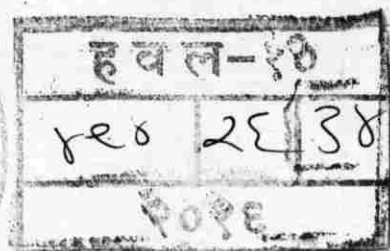 ह व ल-१७
४९४ २६ ३४
२०१६